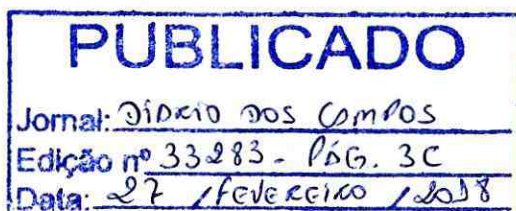 PUBLICADO
Jornal: DIÁRIO DOS CAMPOS
Edição nº 33283 - PÁG. 3C
Data: 27 / FEVEREIRO / 2018